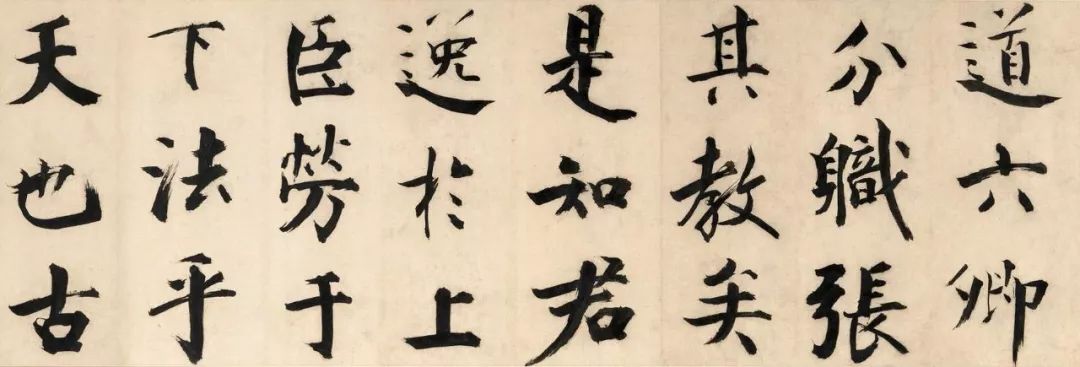 道六卿
分職張
其教矣
是知君
逸於上
臣勞于
下法乎
天也古